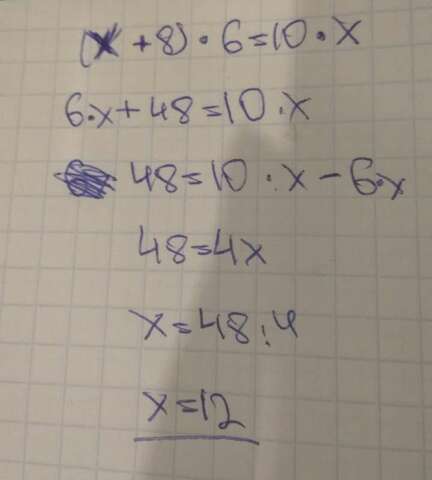 (x + 8) · 6 = 10 · x
6 · x + 48 = 10 · x
48 = 10 · x - 6 · x
48 = 4x
x = 48 : 4
x = 12